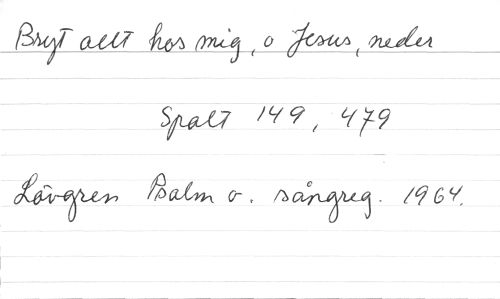 Bryt allt hos mig, o Jesus, neder
Spalt 149, 479
Lövgren Psalm o. sångreg. 1964.